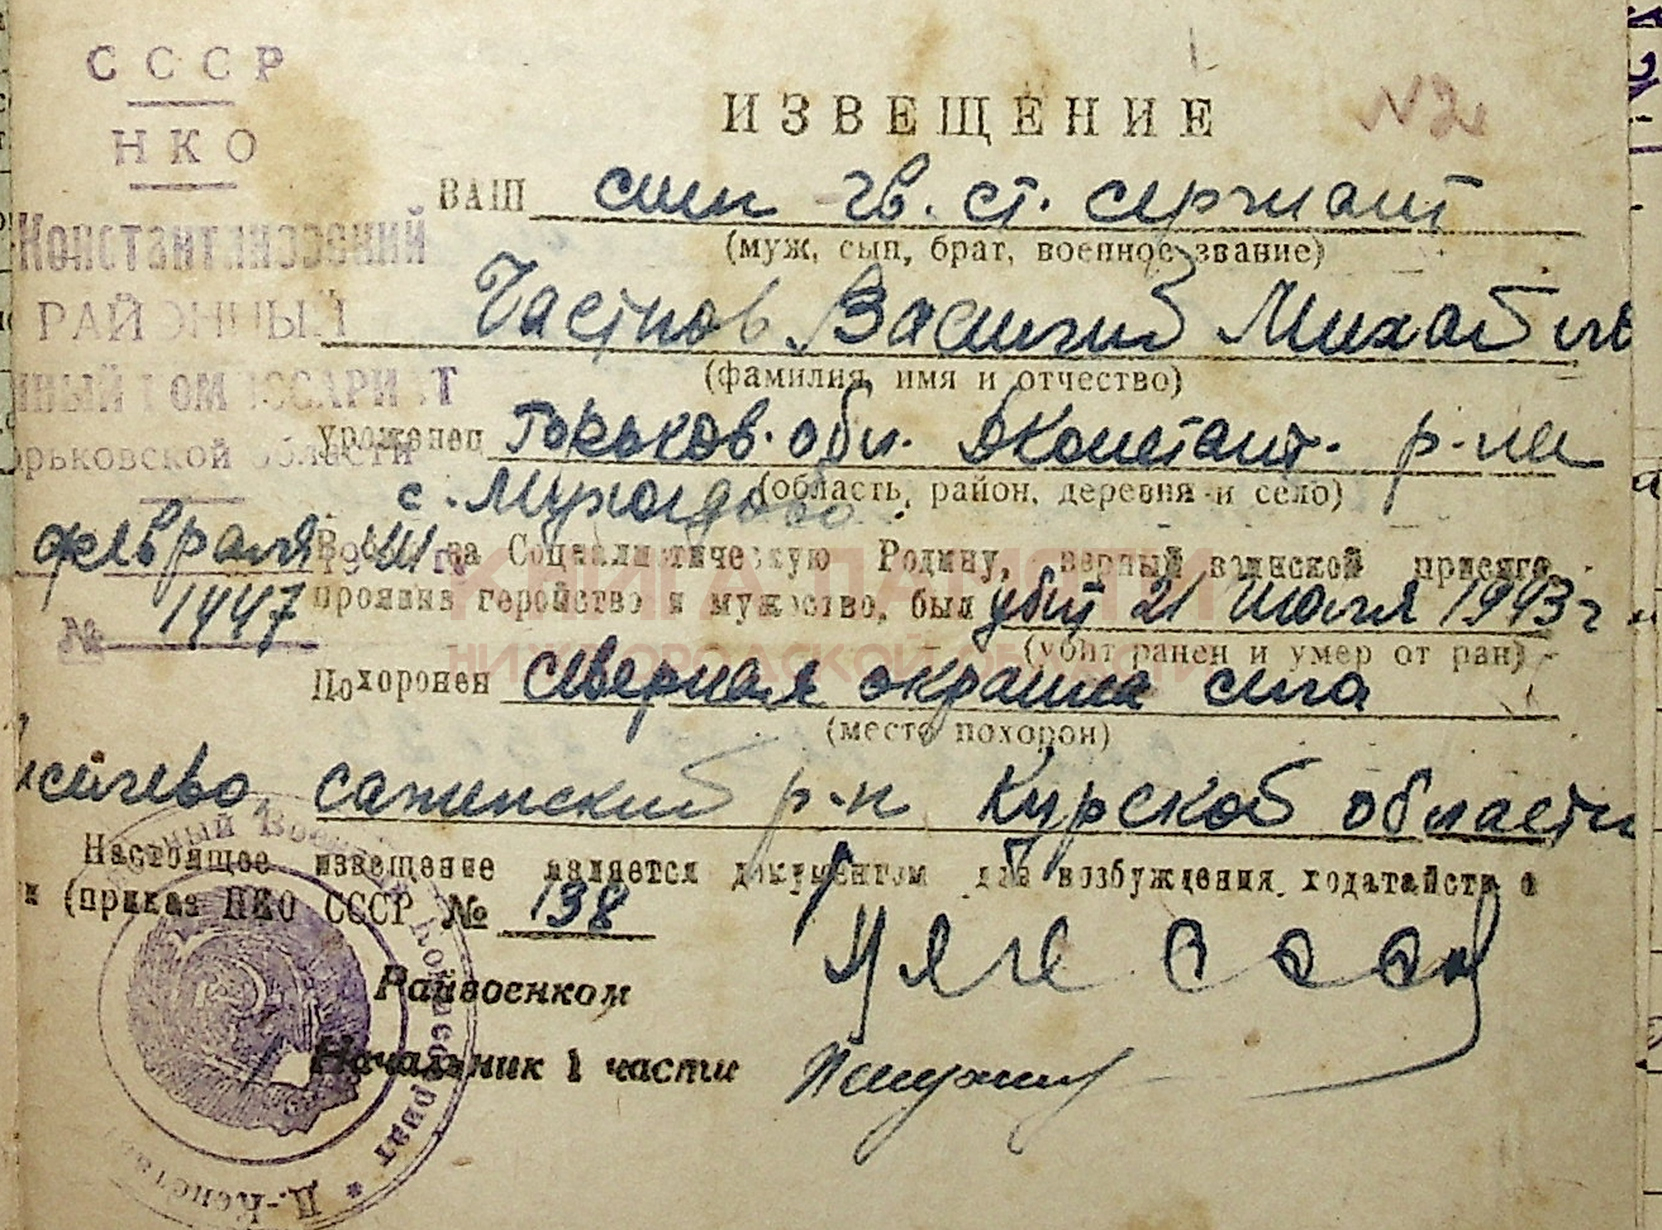 СССР
НКО
Константиновский
РАЙОННЫЙ
ный КОМИССАРИАТ
орьковской области
февраля 1944 г
№ 1447
ИЗВЕЩЕНИЕ
N2
ВАШ сын гв. ст. сержант
(муж, сын, брат, военное звание)
Частнов Василий Михайлов
(фамилия, имя и отчество)
уроженец Горьков. обл. Дконстант. р-на
(область, район, деревня и село)
с.
за Социалистическую Родину, верный воинской присяге,
проявив геройство и мужество, был убит 21 июля 1943 г
(убит ранен и умер от ран)
Похоронен северная окраина села
(место похорон)
р-н Курской области
Настоящее извещение является документом для возбуждения ходатайств о
и (приказ НКО СССР № 138
Райвоенком
Начальник 1 части
КНИГА ПАМЯТИ
НИЖЕГОРОДСКОЙ ОБЛАСТИ